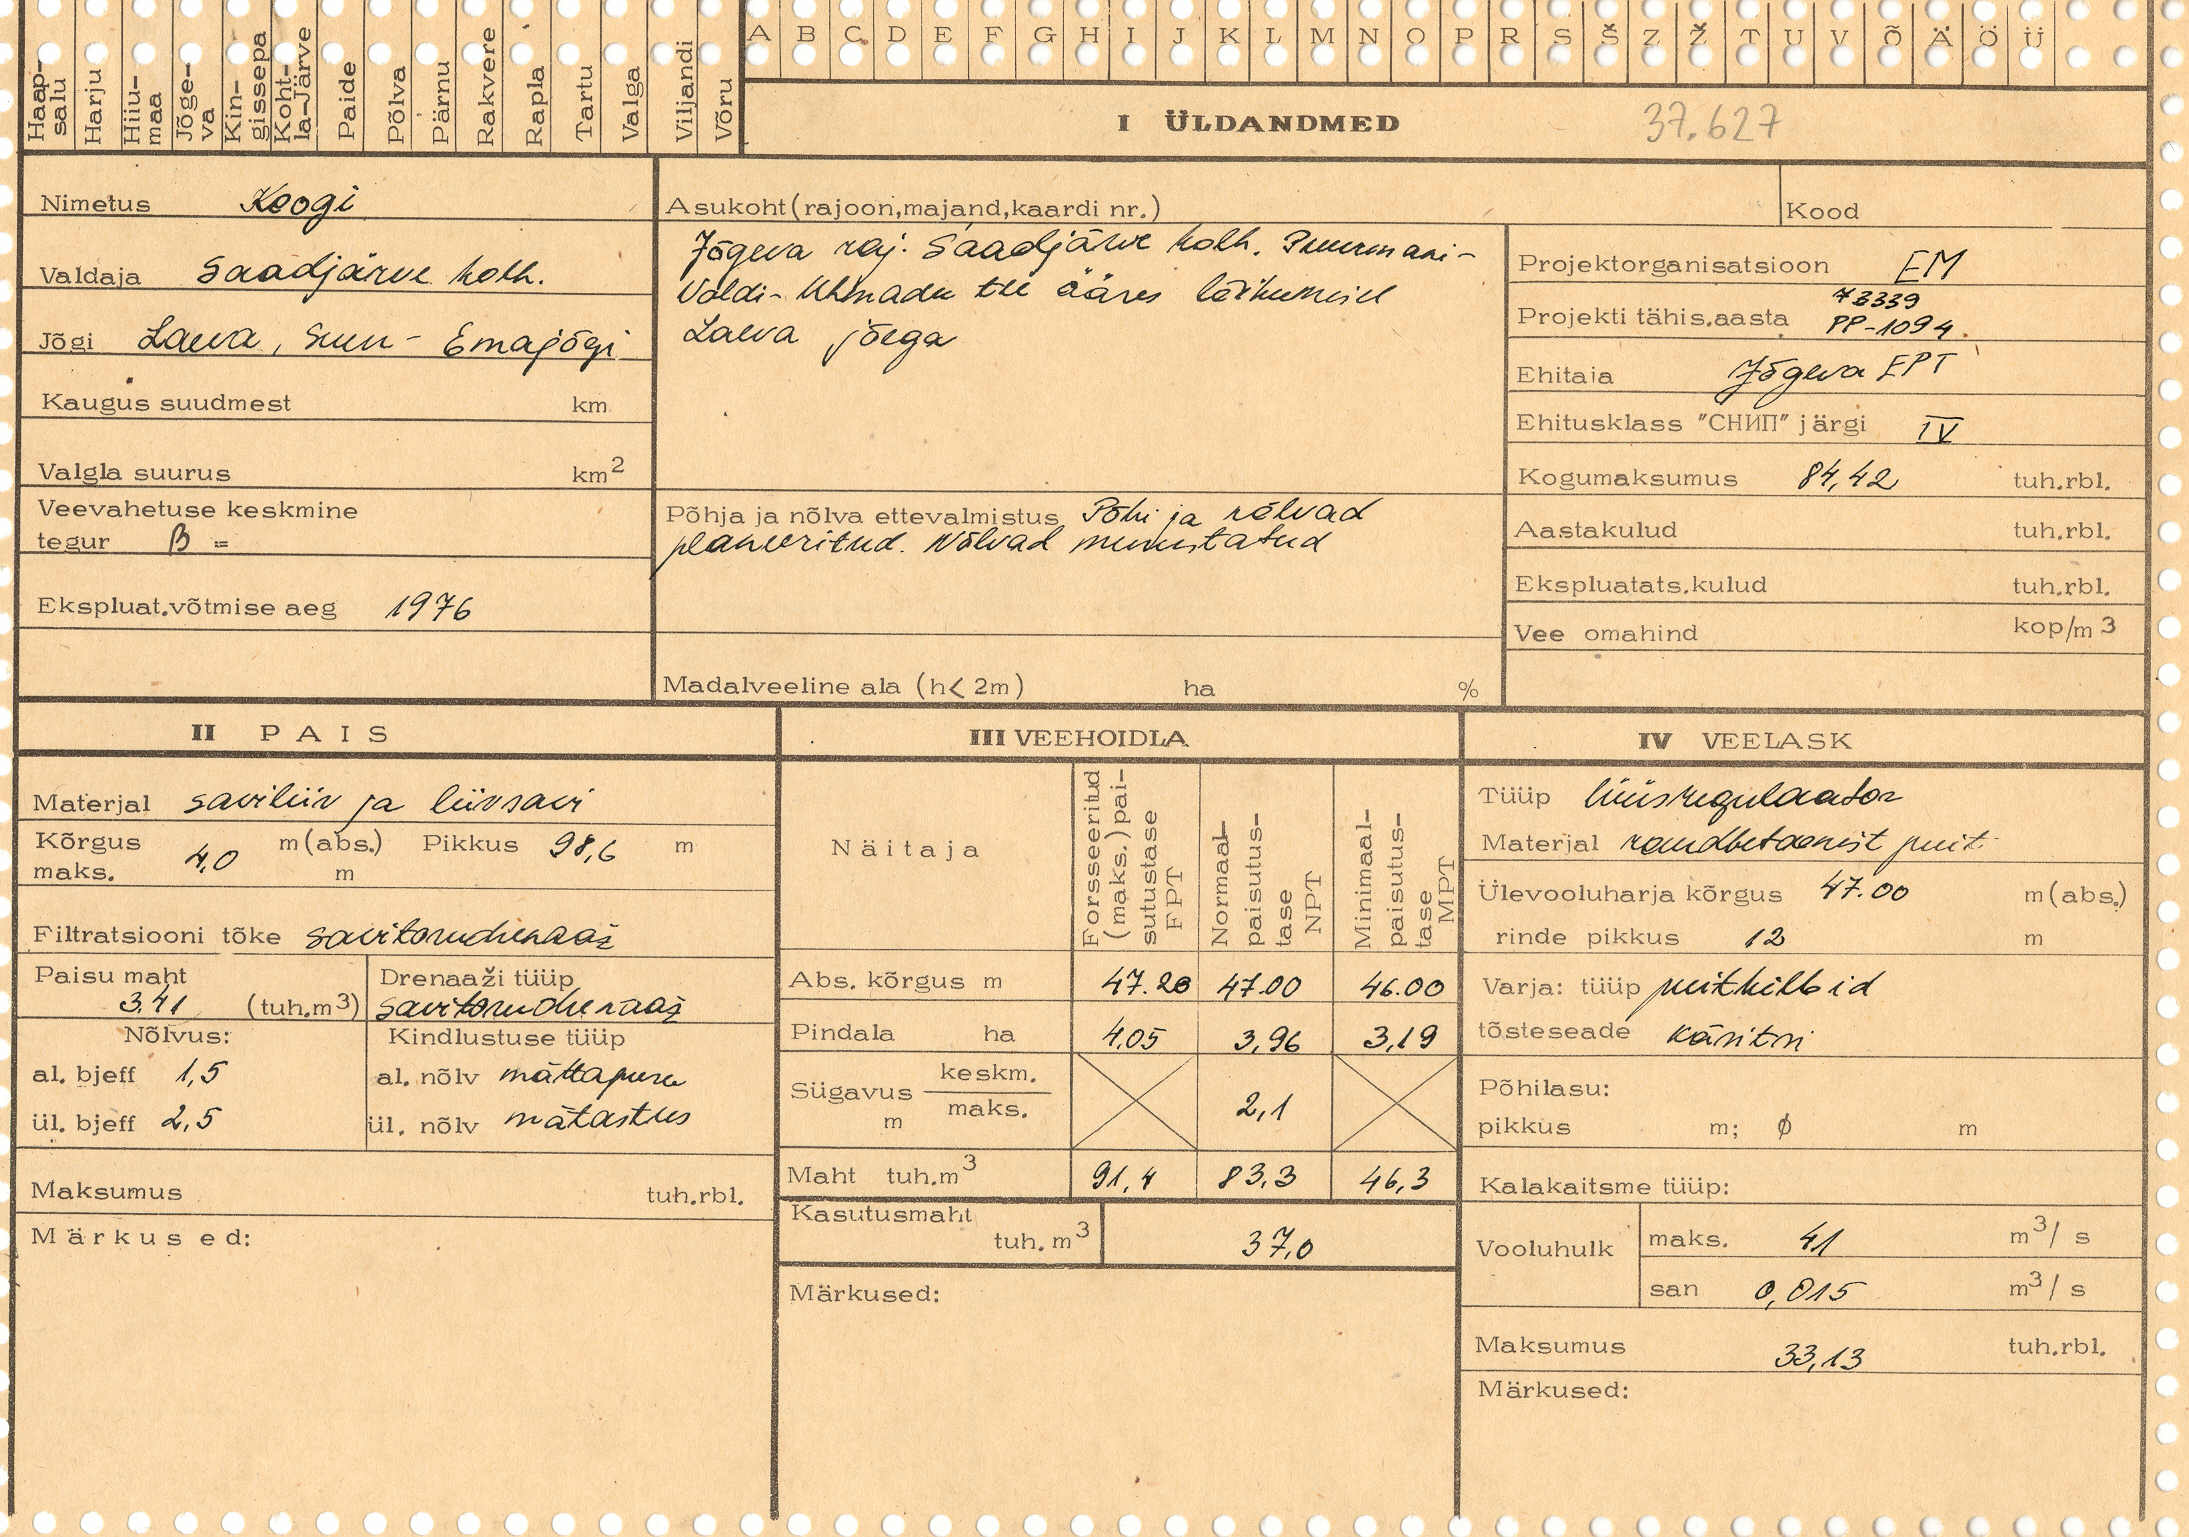 A B C D E F G H I J K L M N O P R S Š Z Ž T U V Õ Ä Ö Ü
Haap-
salu
Harju
Hiiu-
maa
Jõge-
va
Kin-
gissepa
Koht-
la-Järve
Paide
Põlva
Pärnu
Rakvere
Rapla
Tartu
Valga
Viljandi
Võru
I ÜLDANDMED 37.627
Nimetus Koogi
Valdaja Saadjärve kolh.
Jõgi Laeva, Suur-Emajõgi
Kaugus suudmest km
Valgla suurus km2
Veevahetuse keskmine
tegur β =
Ekspluat.võtmise aeg 1976
Asukoht (rajoon,majand,kaardi nr.)
Jõgeva raj. Saadjärve kolh. Puurmani-
Valdi- tee ääres lõikumisel
Laeva jõega
Põhja ja nõlva ettevalmistus Põhi ja nõlvad
planeeritud. Nõlvad murustatud
Madalveeline ala (h< 2m) ha %
Kood
Projektorganisatsioon EM
73339
Projekti tähis.aasta PP-1094
Ehitaja Jõgeva EPT
Ehitusklass "СНИП" järgi IV
Kogumaksumus 84,42 tuh.rbl.
Aastakulud tuh.rbl.
Ekspluatats.kulud tuh.rbl.
Vee omahind kop/m3
II PAIS
Materjal saviliiv ja liivsavi
Kõrgus m(abs.) Pikkus 98,6 m
maks. 4,0 m
Filtratsiooni tõke savitorudrenaaž
Paisu maht
3.41 (tuh.m3)
Drenaaži tüüp
savitorudrenaaž
Nõlvus:
al. bjeff 1,5
ül. bjeff 2,5
Kindlustuse tüüp
al. nõlv mättapuru
ül. nõlv mätastus
Maksumus tuh.rbl.
Märkused:
III VEEHOIDLA
Näitaja
Forsseeritud
(maks.) pai-
sutustase
FPT
Normaal-
paisutus-
tase
NPT
Minimaal-
paisutus-
tase
MPT
Abs. kõrgus m 47.20 47.00 46.00
Pindala ha 4,05 3,96 3,19
Sügavus keskm.
m maks. 2,1
Maht tuh.m3 91,4 83,3 46,3
Kasutusmaht
tuh.m3 37,0
Märkused:
IV VEELASK
Tüüp lüüsregulaator
Materjal raudbetoonist puit
Ülevooluharja kõrgus 47.00 m(abs.)
rinde pikkus 12 m
Varja: tüüp puitkilbid
tõsteseade käsitsi
Põhilasu:
pikkus m; ϕ m
Kalakaitsme tüüp:
Vooluhulk
maks. 41 m3/s
san 0,015 m3/s
Maksumus 33,13 tuh.rbl.
Märkused: